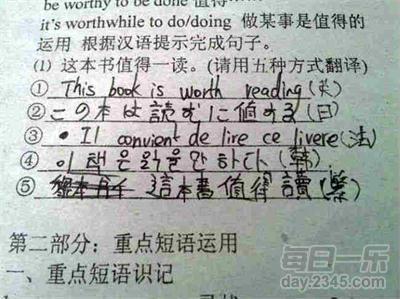 be worthy to be done 值得
it's worthwhile to do/doing 做某事是值得的
运用 根据汉语提示完成句子。
(1) 这本书值得一读。(请用五种方式翻译)
① This book is worth reading
② この本は読むに値する(日)
③ • Il convient de lire ce livere (法)
④ 이 책은 읽을만 하다 (韩)
⑤ 這本書值得讀(繁)
第二部分：重点短语运用
一、重点短语识记
每日一乐
day.2345.com